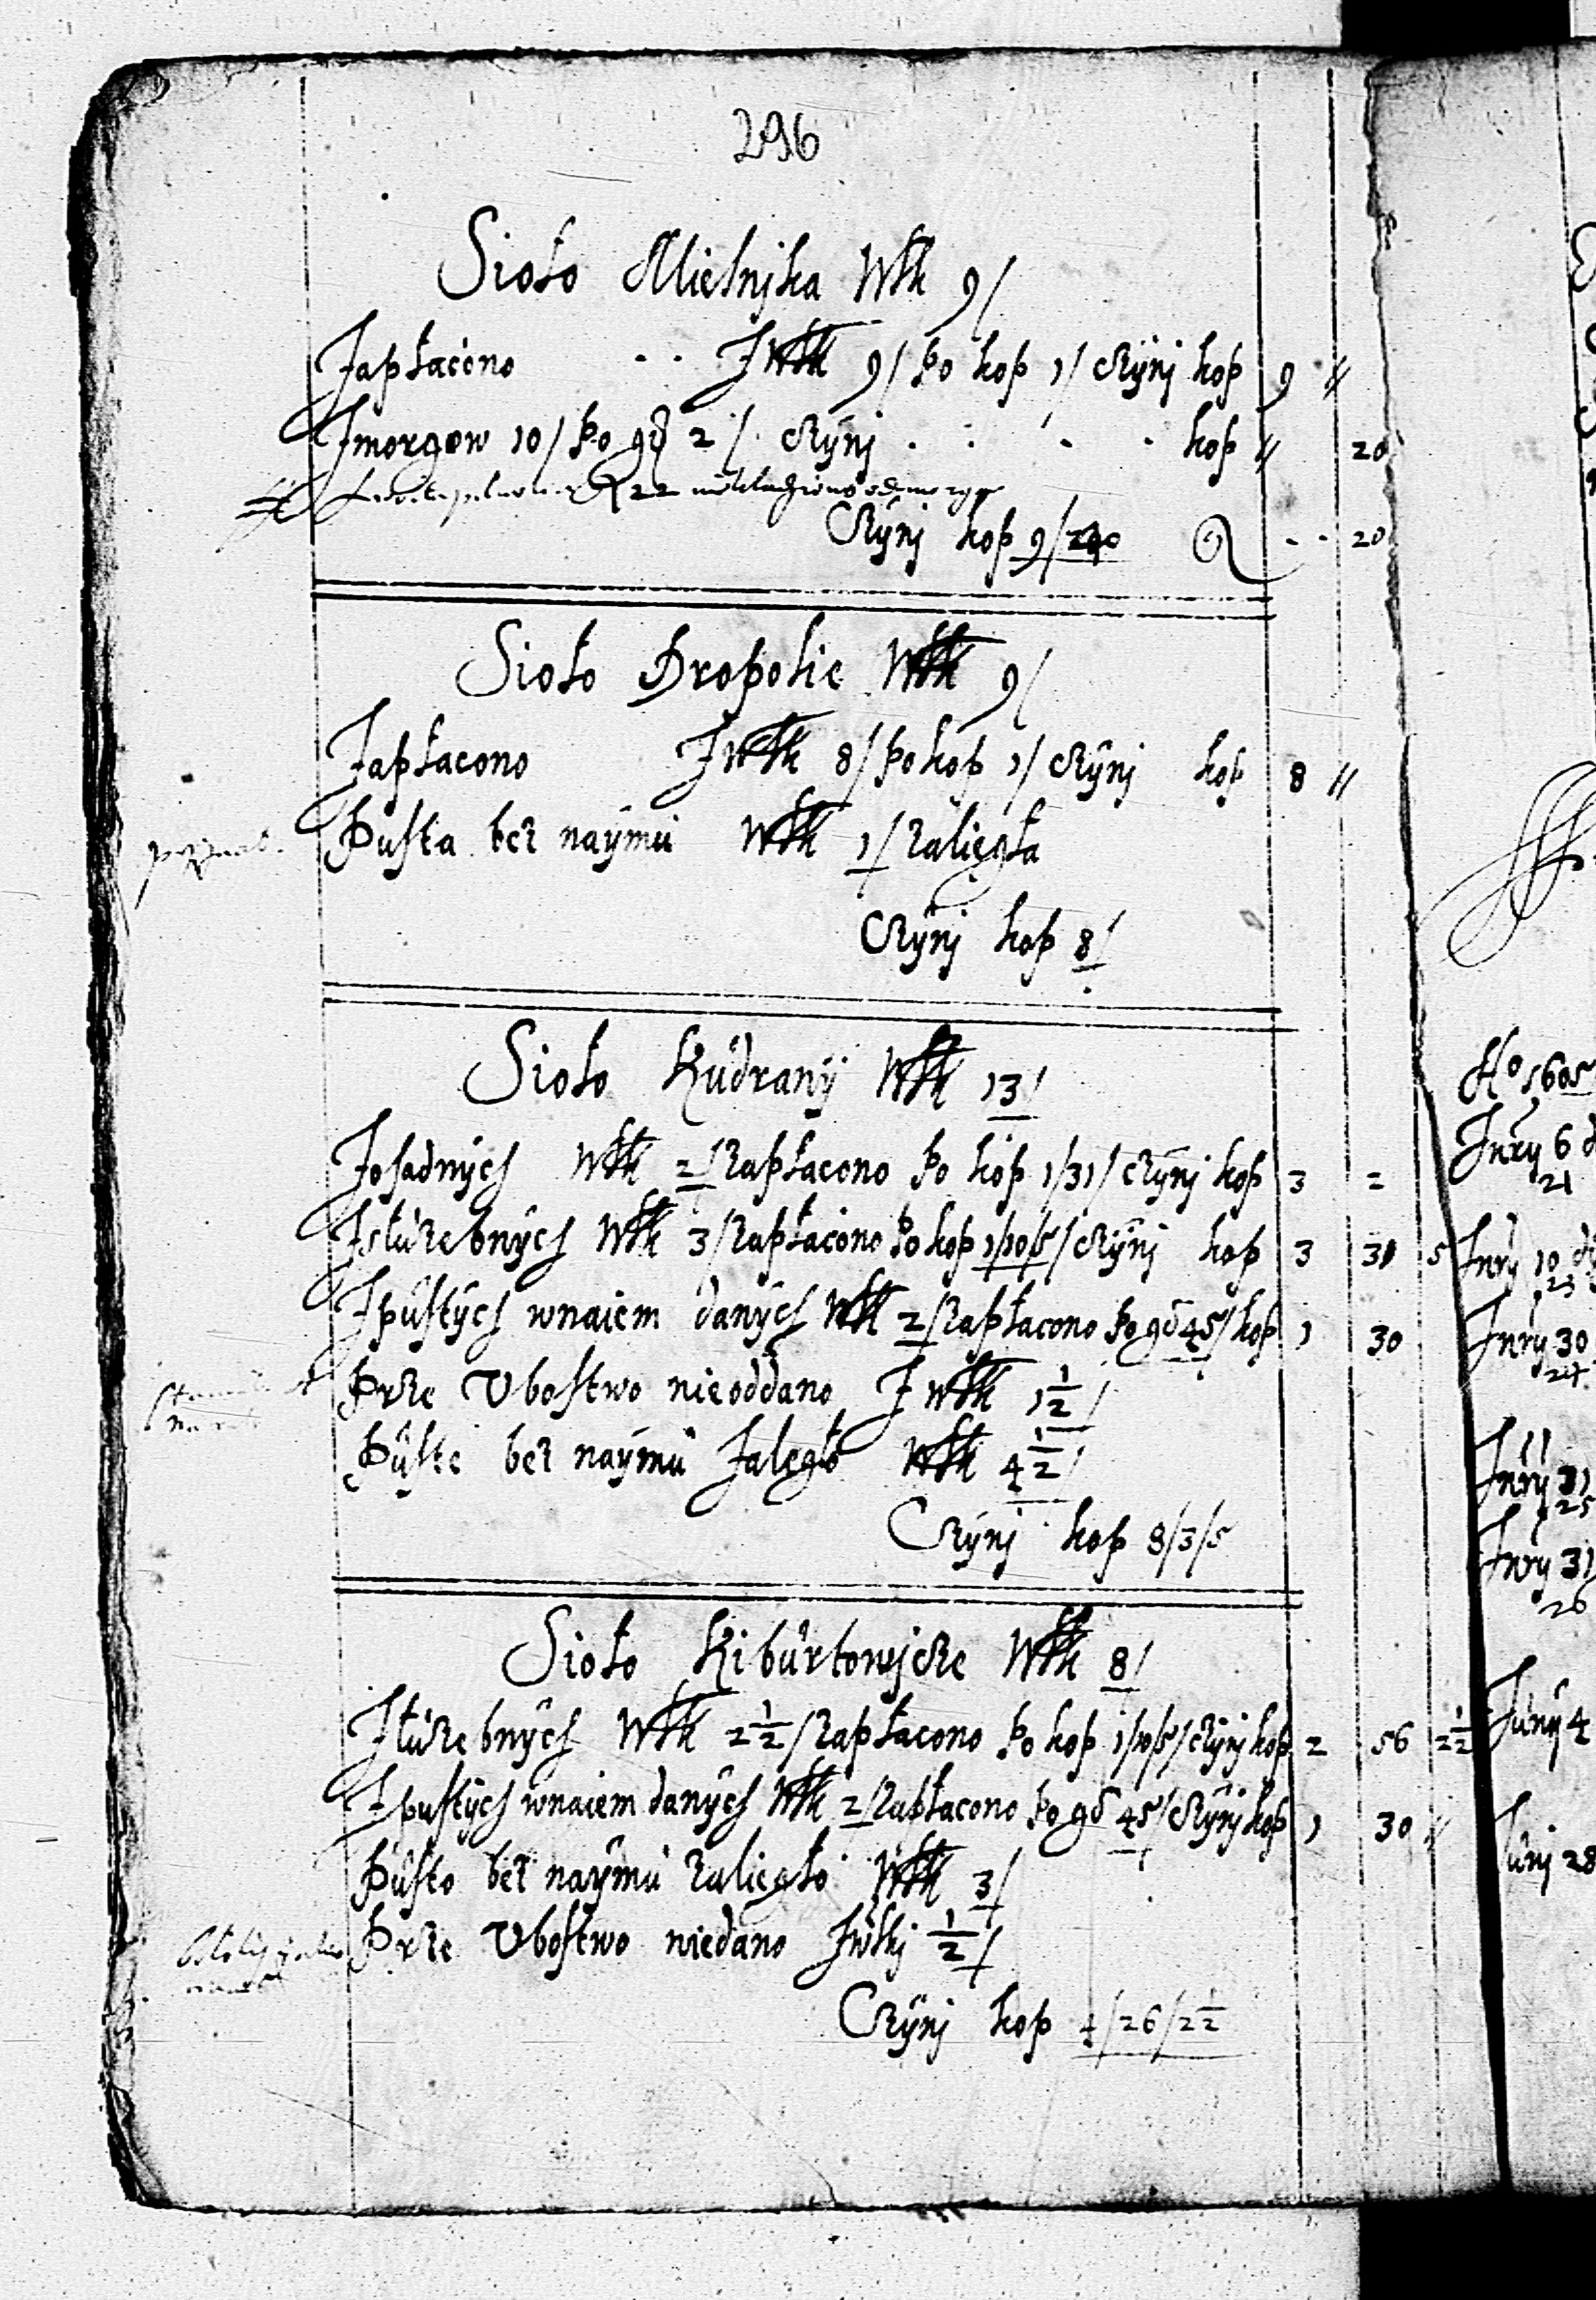 296
Sioło Mielnika Włk 9/
Zapłacono Z Włk 9/ Po kop 1/ Czÿnj kop 9 //
Z morgow 10/ Po gř 2/ Czÿnj kop // 20
22
Czÿnj kop 9/20 20
Sioło Dropolie Włk 9/
Zapłacono Z Włk 8/ Po kop 1/ Czÿnj kop 8 //
Pusta bez naÿmu Włk 1/ zaliegła
Czÿnj kop 8/
Sioło Kudranÿ Włk 13/
Z osadnÿch Włk 2/ zapłacono Po kop 1/31/ Czÿnj kop 3 2
Z służebnÿch Włk 3/ zapłacono Po kop 1/10/5/ Czÿnj kop 3 31 5
Z pustÿch wnaiem danÿch Włk 2/ zapłacono Po gř 45/ kop 1 30
Prze Vbostwo nieoddano Z Włk 1½/
Puste bez naÿmu zaległo Włk 4½/
Czÿnj kop 8/3/5
Sioło Kiburtowjcze Włk 8/
Z służebnÿch Włk 2½/ zapłacono Po kop 1/10/5/ Czÿnj kop 2 56 2½
Z pustÿch wnaiem danÿch Włk 2/ zapłacono Po gř 45/ Czÿnj kop 1 30 //
Pusto bez naÿmu zaliegło Włk 3/
Prze Vbostwo niedano Z włkj ½/
Czÿnj kop 4/26/2½
Ao 1605
Junÿ 6
21
Junÿ 10
23
Junÿ 30
24
Junÿ 31
25
Junÿ 31
26
Junÿ 4
Junj 28